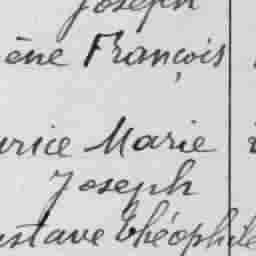 Joseph
ène François
urice Marie
Joseph
ustave Théophile